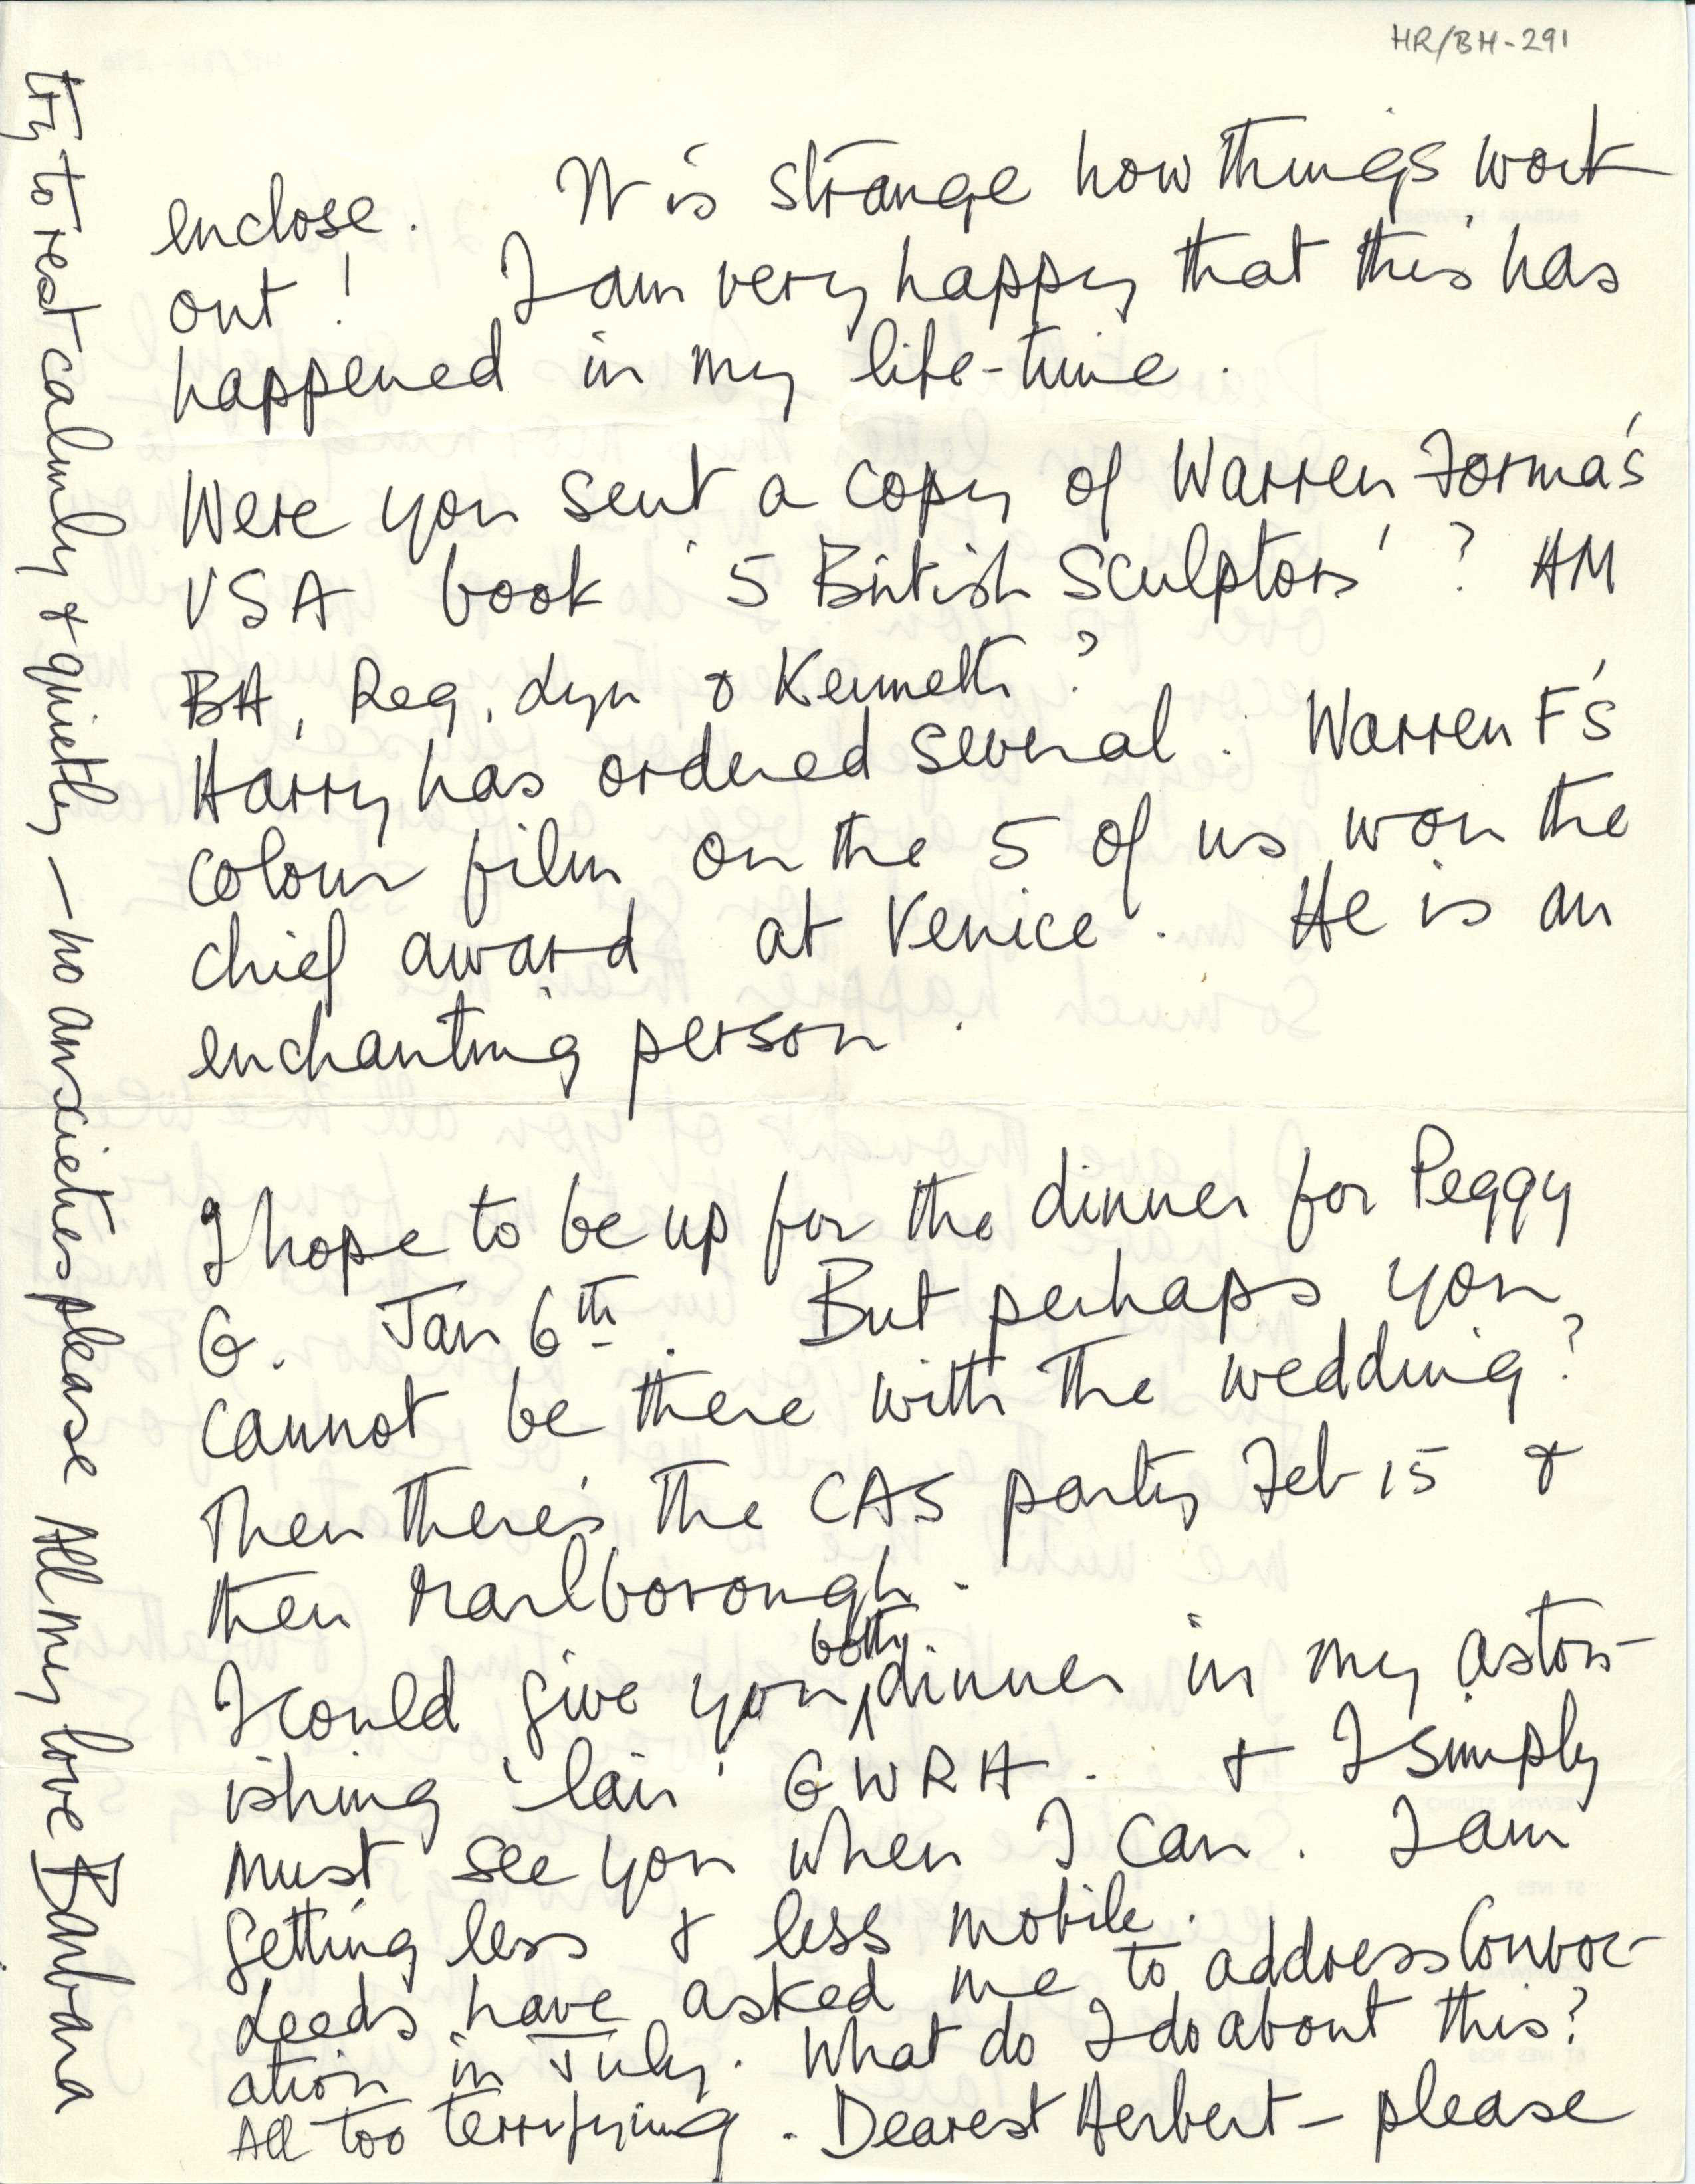 HR/BH-291
enclose. It is strange how things work
out! I am very happy that this has
happened in my life-time.
Were you sent a copy of Warren Forma's
USA book '5 British Sculptors'? HM
BH, Reg, Lyn & Kenneth?
Harry has ordered several. Warren F's
colour film on the 5 of us won the
chief award at Venice. He is an
enchanting person.
I hope to be up for the dinner for Peggy
G. Jan 6th. But perhaps you
cannot be there with the wedding?
Then there's the CAS party Feb 15 &
then Marlborough.
I could give you both dinner in my aston-
ishing 'lair' GWRH. & I simply
must see you when I can. I am
getting less & less mobile.
Leeds have asked me to address Convoc-
ation in July. What do I do about this?
All too terrifying. Dearest Herbert – please
try to rest calmly & quietly – no anxieties please All my love Barbara